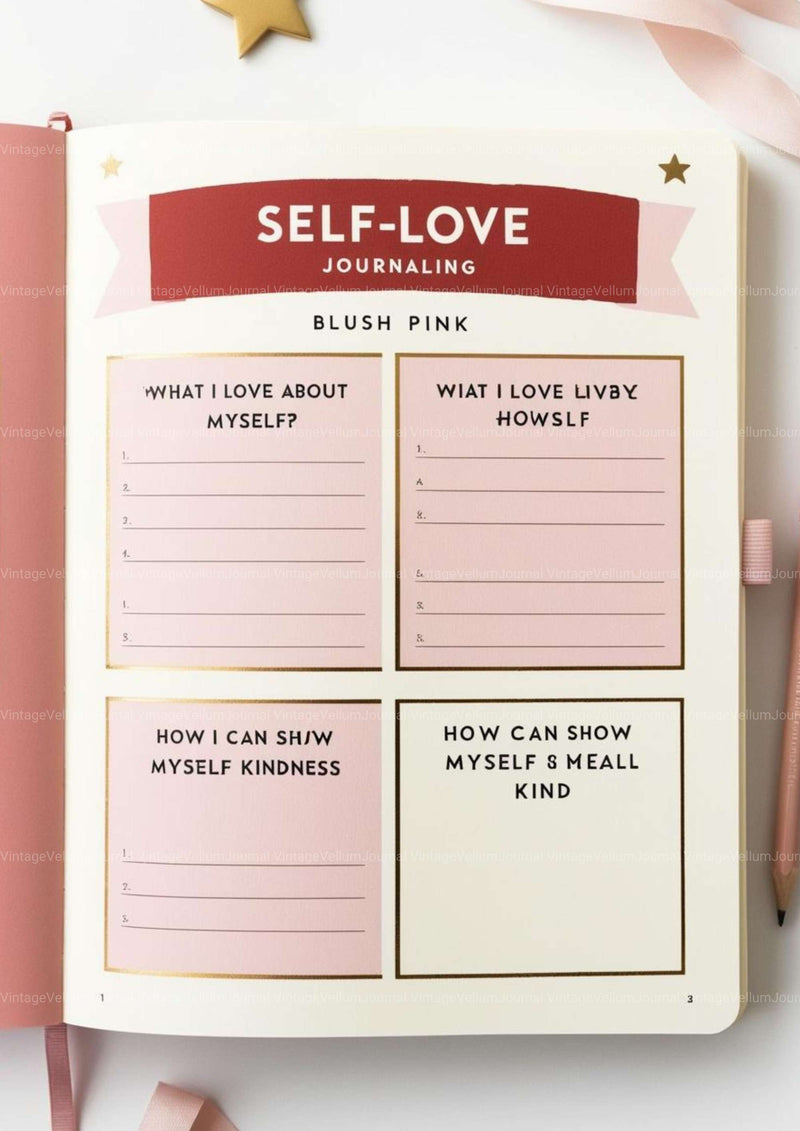 SELF-LOVE
JOURNALING
BLUSH PINK
WHAT I LOVE ABOUT
MYSELF?
1.
2.
3.
4.
1.
3.
WIAT I LOVE LIVBY
HOWSLF
1.
A
8.
8.
HOW I CAN SHIW
MYSELF KINDNESS
1.
2.
3.
HOW CAN SHOW
MYSELF 8 MEALL
KIND
1
3
VintageVellumJournal VintageVellumJournal VintageVellumJournal